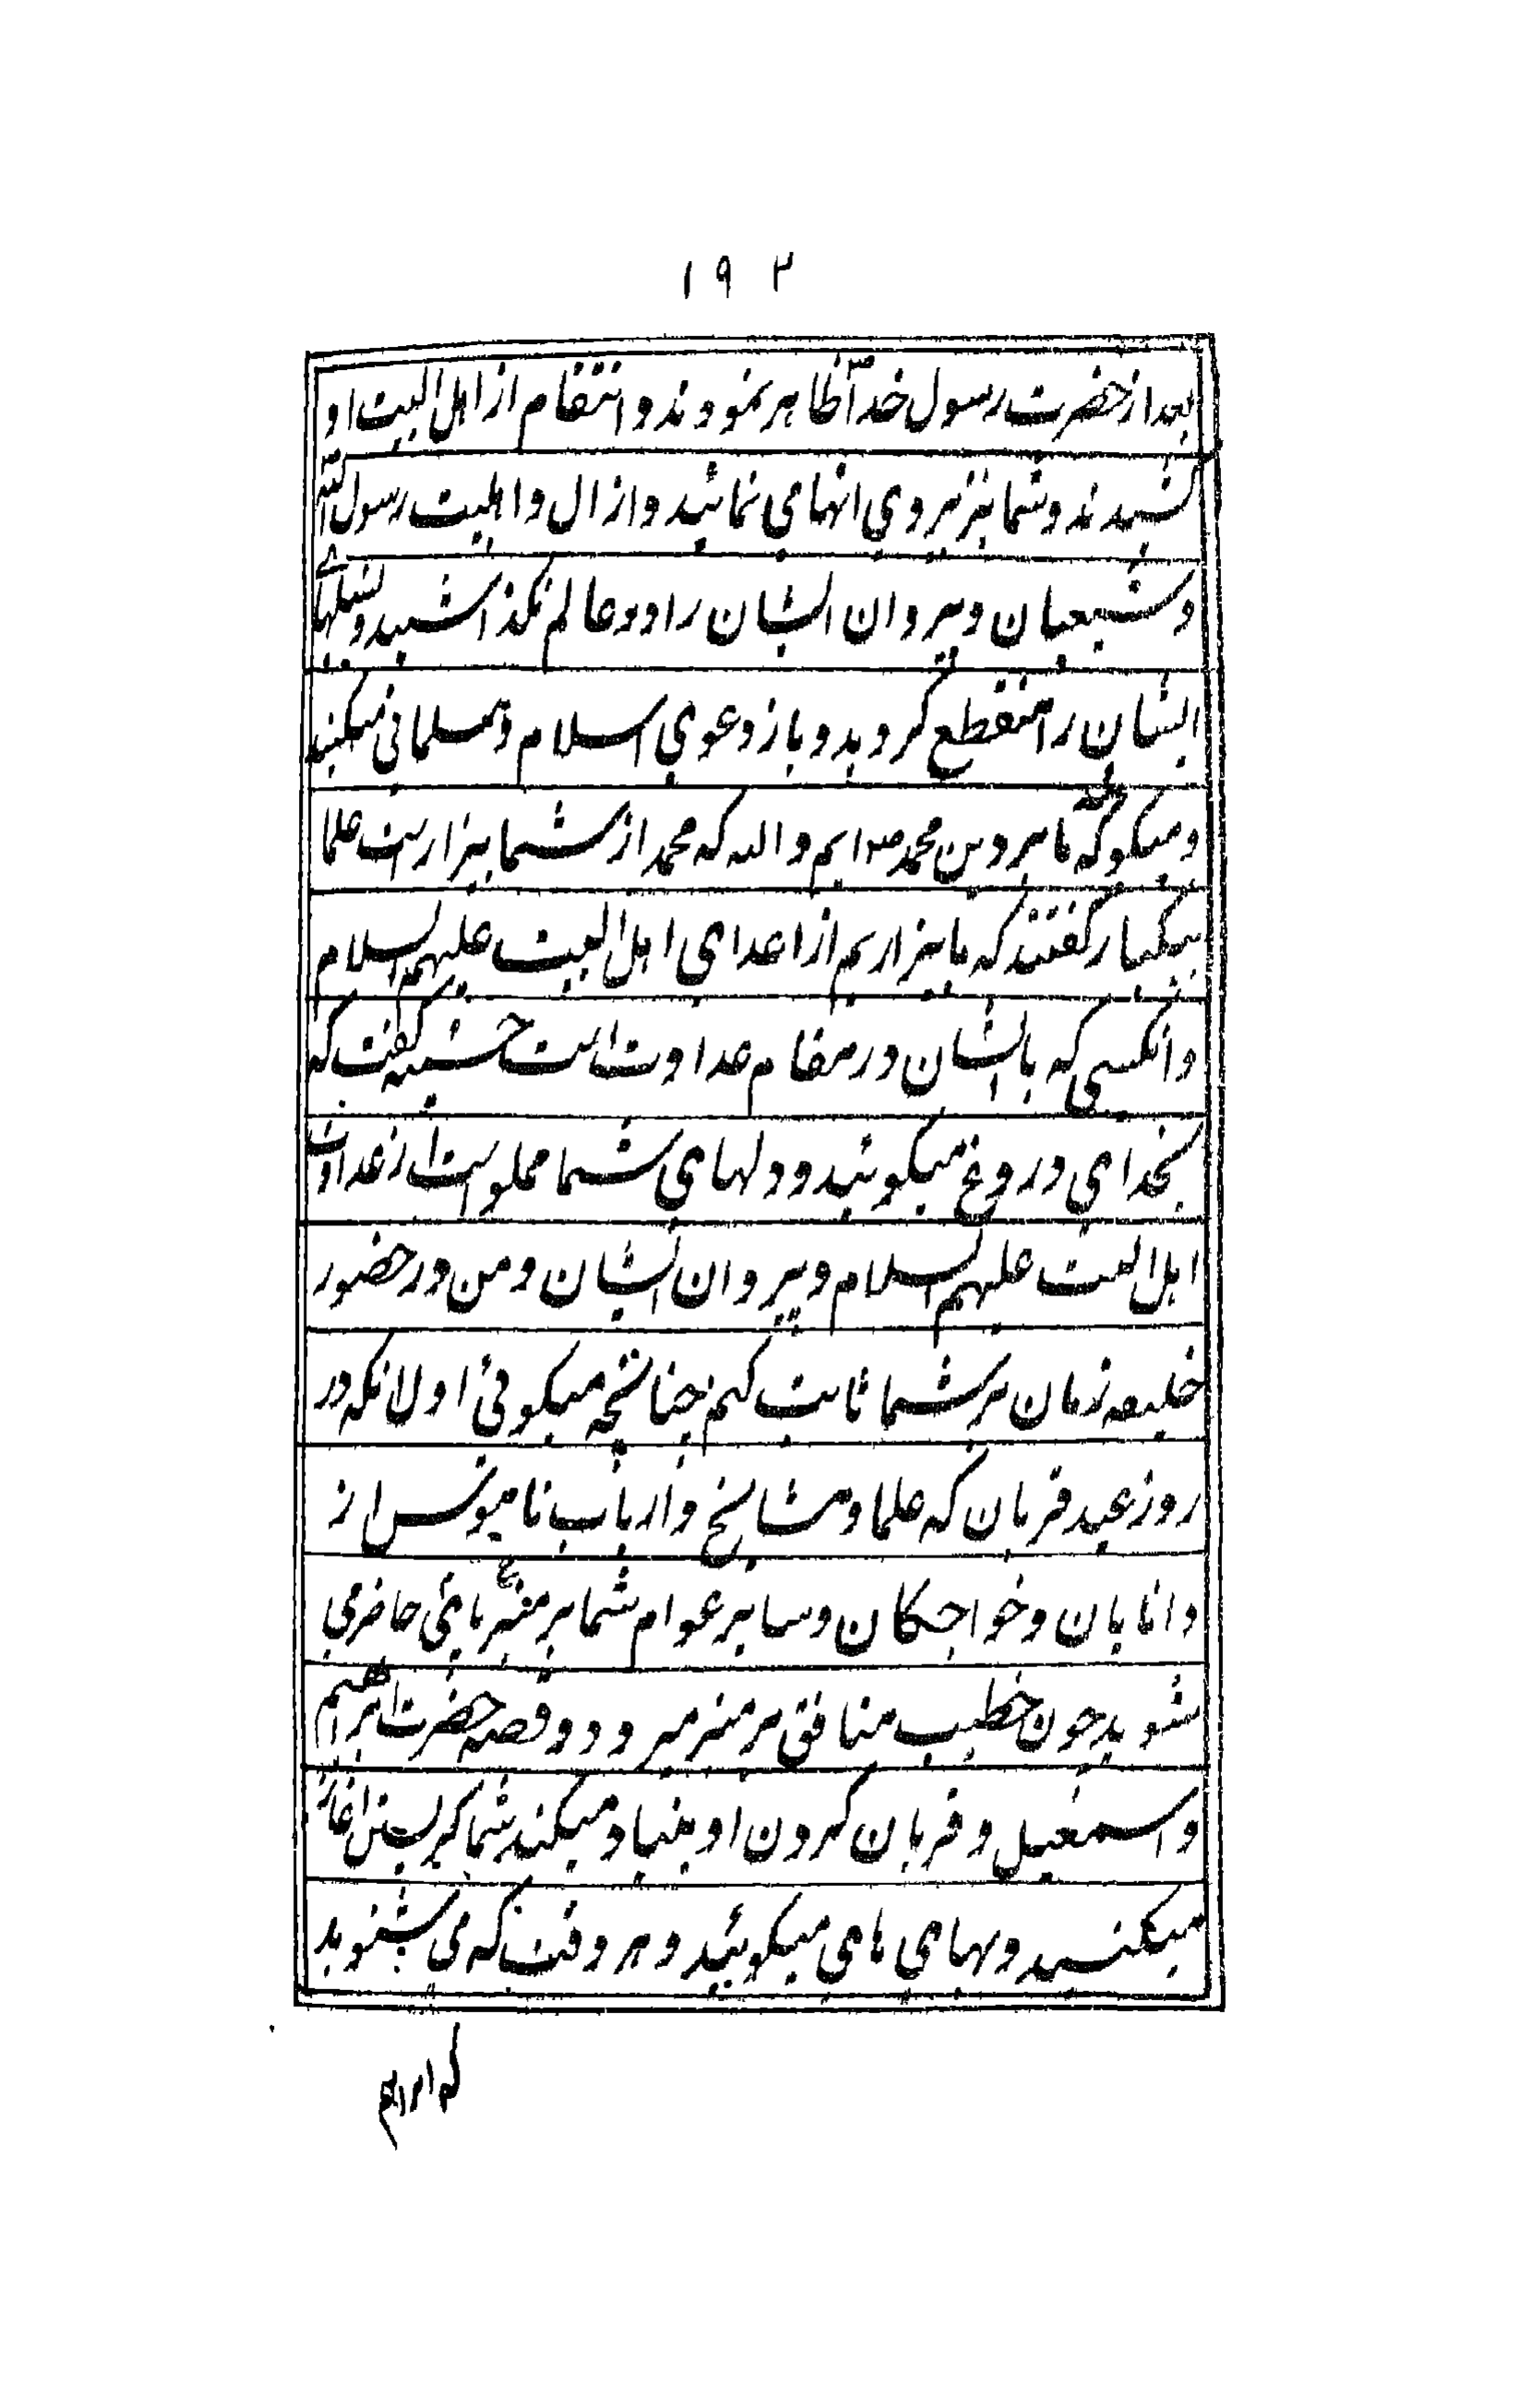 ۱۹۲
بعد از حضرت رسول خدا ص ظاهر نمودند و انتقام از اهل البیت او
کشیدند و شما نیز پیروی انها می نمائید و از ال و اهلبیت رسول الله
و شیعیان و پیروان ایشان را در عالم نگذاشتید و نسلهای
ایشان را منقطع کردید و باز دعوی اسلام و مسلمانی میکنید
و میکوئید که ما بر دین محمد ص ایم والله که محمد از شما بیزارست علما
بیکبار گفتند که ما بیزاریم از اعدای اهل البیت علیهم السلام
و انکسی که با ایشان در مقام عداوت است حسنیه گفت که
بخدای دروغ میکوئید و دلهای شما مملو است از عداوت
اهل البیت علیهم السلام و پیروان ایشان و من در حضور
خلیفه زمان بر شما ثابت کنم چنانچه میکوئی اولا انکه در
روز عید قربان که علما و مشایخ و ارباب ناموس از
دانایان و خواجکان و سایر عوام شما بر منبر حاضر می
شوید چون خطیب منافق بر منبر میرود و قصه حضرت ابراهیم
و اسمعیل و قربان کردن او بنیاد میکند شما گریستن اغاز
میکنید و بهای های میکوئید و هر وقت که می شنوید
که ابراهیم